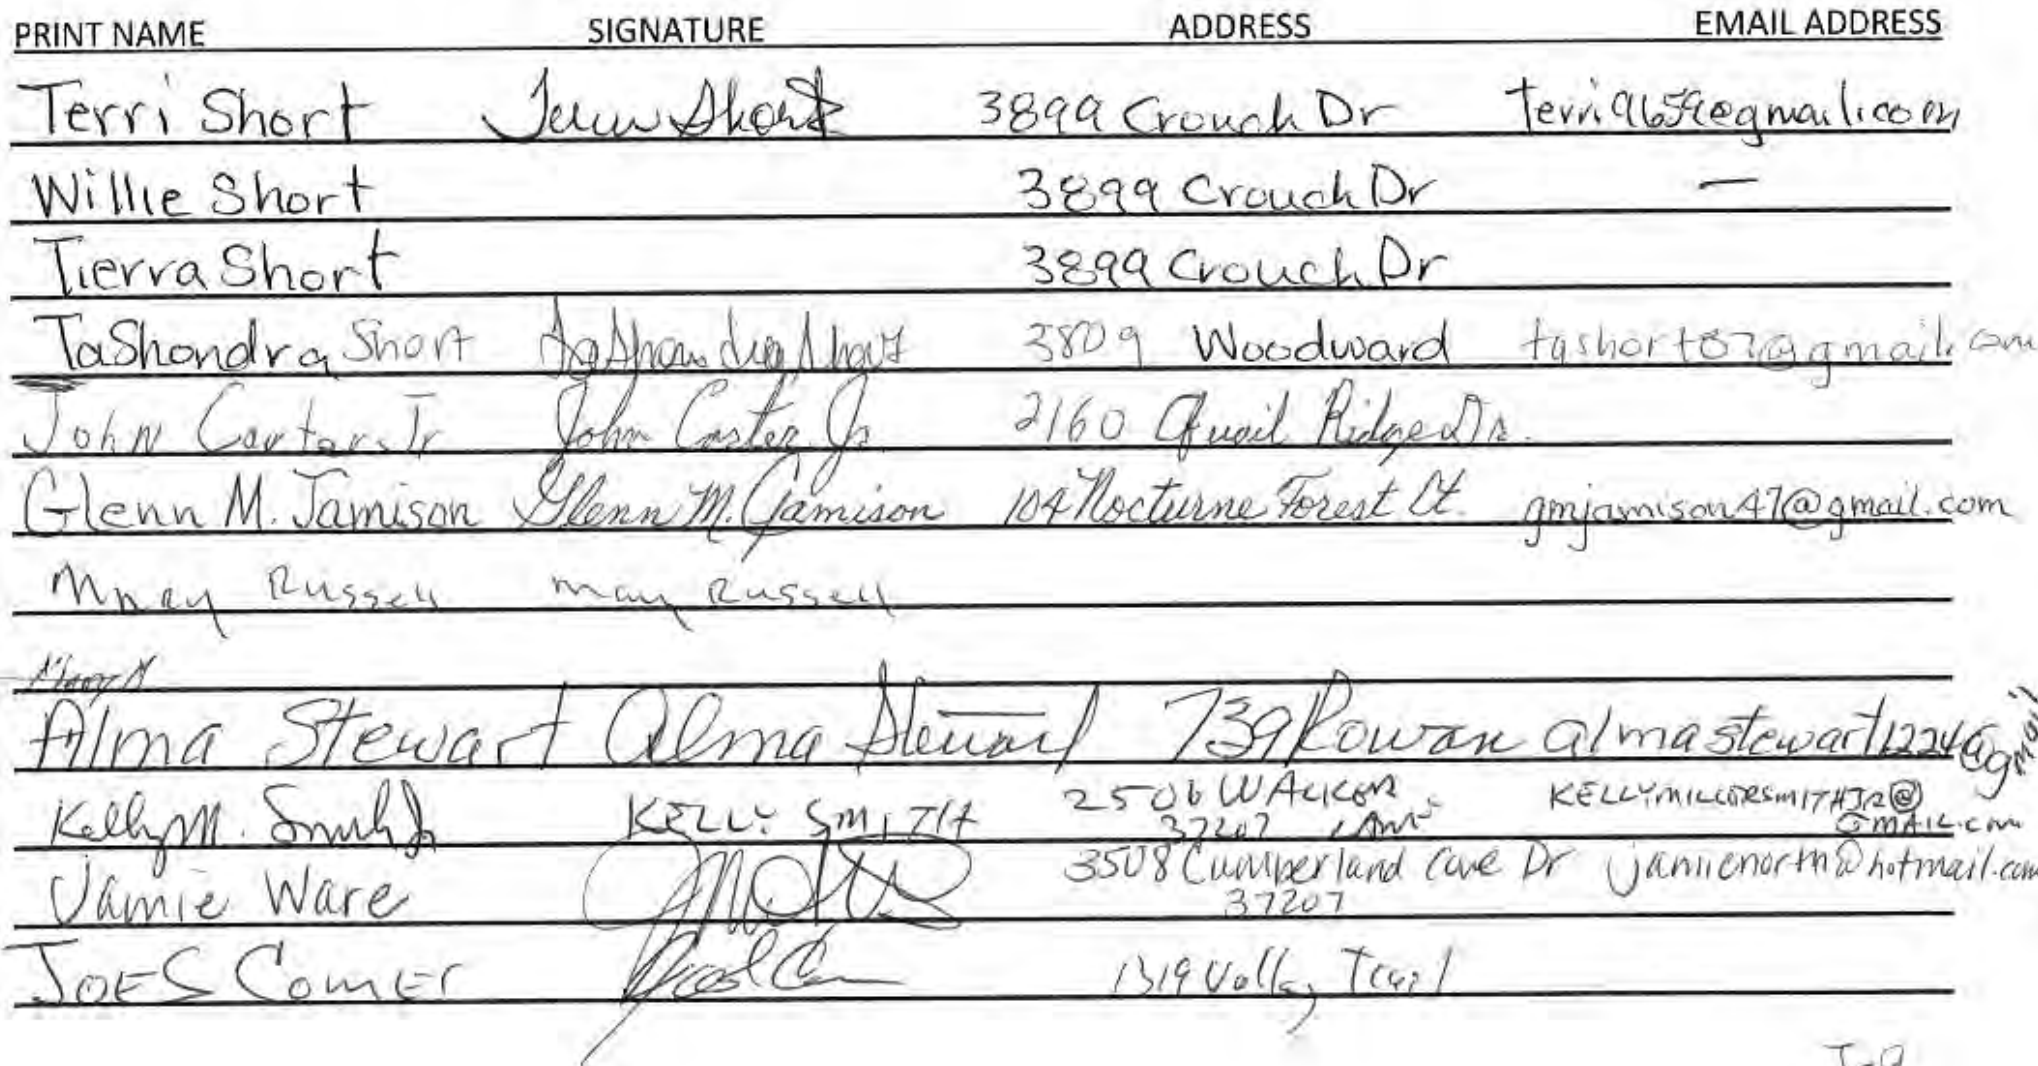 PRINT NAME SIGNATURE ADDRESS EMAIL ADDRESS
Terri Short Terri Short 3899 Crouch Dr terri9659@gmail.com
Willie Short 3899 Crouch Dr —
Tierra Short 3899 Crouch Dr
TaShondra Short TaShondra Short 3809 Woodward tashort87@gmail.com
John Carter Jr John Carter Jr 2160 Quail Ridge Dr.
Glenn M. Jamison Glenn M. Jamison 104 Nocturne Forest Ct. gmjamison47@gmail.com
Russell May Russell
Alma Stewart Alma Stewart 739 Rowan almastewart1224@gmail
Kelly M. Smith Jr KELLY SMITH 2506 WALKER LANE KELLYMILLERSMITHJR@
37207 GMAIL.com
Jamie Ware 3508 Cumberland Cove Dr jamienorth@hotmail.com
37207
JOES COMER 1319 Valley Trail